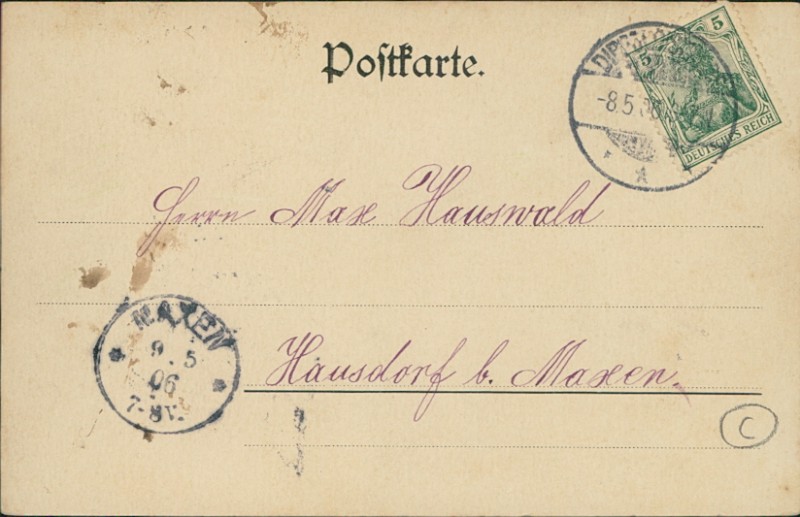 Postkarte.
5
5
DEUTSCHES REICH
-8.5.
Herrn Max Hauswald
MAXEN
9.5
06
7-8V.
Hausdorf b. Maxen.
C